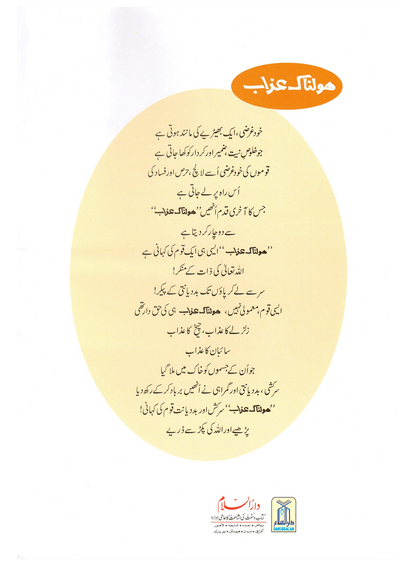 ھولناک عذاب
خود غرضی، ایک بھیڑیے کی مانند ہوتی ہے
جو خلوص نیت، ضمیر اور کردار کو کھا جاتی ہے
قوموں کی خود غرضی اُسے لالچ، حرص اور فساد کی
اُس راہ پر لے جاتی ہے
جس کا آخری قدم اُنھیں ’’ھولناک عذاب‘‘
سے دوچار کر دیتا ہے
’’ھولناک عذاب‘‘ ایسی ہی ایک قوم کی کہانی ہے
اللہ تعالیٰ کی ذات کے منکر!
سر سے لے کر پاؤں تک بددیانتی کے پیکر!
ایسی قوم معمولی نہیں، ھولناک عذاب ہی کی حق دار تھی
زلزلے کا عذاب، چیخ کا عذاب
سائبان کا عذاب
جو اُن کے جسموں کو خاک میں ملا گیا
سرکشی، بددیانتی اور گمراہی نے اُنھیں برباد کر کے رکھ دیا
’’ھولناک عذاب‘‘ سرکش اور بددیانت قوم کی کہانی!
پڑھیے اور اللہ کی پکڑ سے ڈریے
دارالسلام
کتاب و سنت کی اشاعت کا عالمی ادارہ
دارالسلام
DARUSSALAM